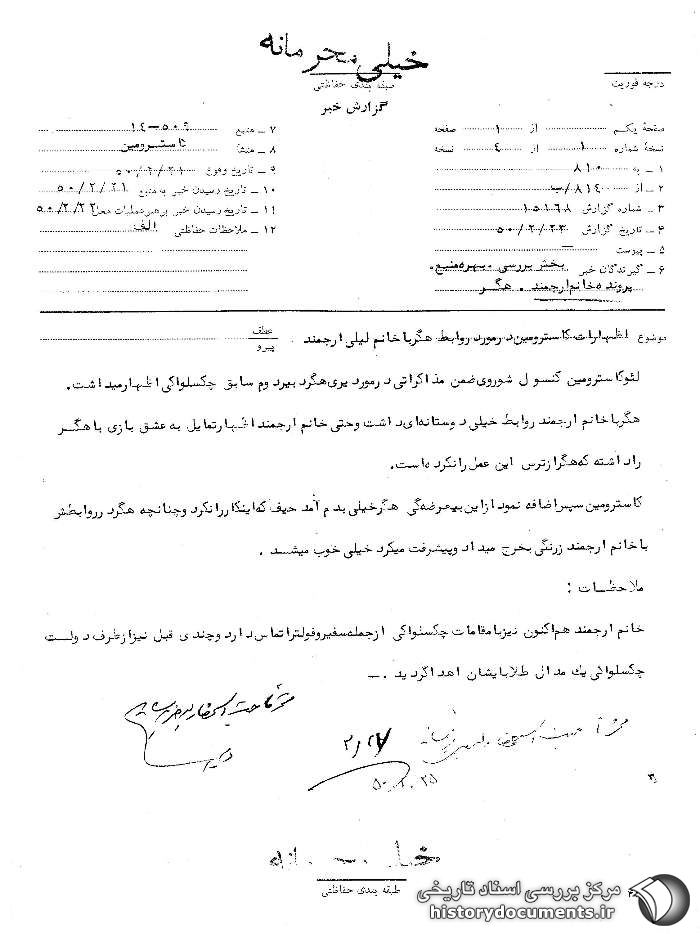 خیلی محرمانه
طبقه بندی حفاظتی
درجه فوریت
گزارش خبر
صفحهٔ یکم از ۱ صفحه
نسخهٔ شماره ۱ از ٤ نسخه
۱ ـ به ۸۱۰
۲ ـ از ۸۱٤/ب
۳ ـ شماره گزارش ۱۵۱۶۸
۴ ـ تاریخ گزارش ۵۰/۲/۲۳
۵ ـ پیوست ـ
۶ ـ گیرندگان خبر بخش بررسی . بهره منبع .
پرونده خانم ارجمند . هگر
۷ ـ منبع ۵۰۹-۱٤
۸ ـ منشأ کاسترومین
۹ ـ تاریخ وقوع ۵۰/۲/۲۱
۱۰ ـ تاریخ رسیدن خبر به منبع ۵۰/۲/۲۱
۱۱ ـ تاریخ رسیدن خبر برهبر عملیات محل ۵۰/۲/۲۲
۱۲ ـ ملاحظات حفاظتی الف
موضوع اظهارات کاسترومین در مورد روابط هگر با خانم لیلی ارجمند
عطف
پیرو
لئو کاسترومین کنسول شوروی ضمن مذاکراتی در مورد یری هگر دبیر دوم سابق چکسلواکی اظهار میداشت.
هگر با خانم ارجمند روابط خیلی دوستانه ای داشت وحتی خانم ارجمند اظهار تمایل به عشق بازی با هگر
را داشته که هگر از ترس این عمل را نکرده است.
کاسترومین سپس اضافه نمود از این بیعرضه گی هگر خیلی بدم آمد حیف که اینکار را نکرد وچنانچه هگر در روابطش
با خانم ارجمند زرنگی بخرج میداد وپیشرفت میکرد خیلی خوب میشد .
ملاحظات :
خانم ارجمند هم اکنون نیز با مقامات چکسلواکی ازجمله سفیر وفولترا تماس دارد وچندی قبل نیز از طرف دولت
چکسلواکی یك مدال طلا بایشان اهدا گردید . ـ
۲/۲۷
۵۰.۲.۲۵
خیلی محرمانه
طبقه بندی حفاظتی
مرکز بررسی اسناد تاریخی
historydocuments.ir